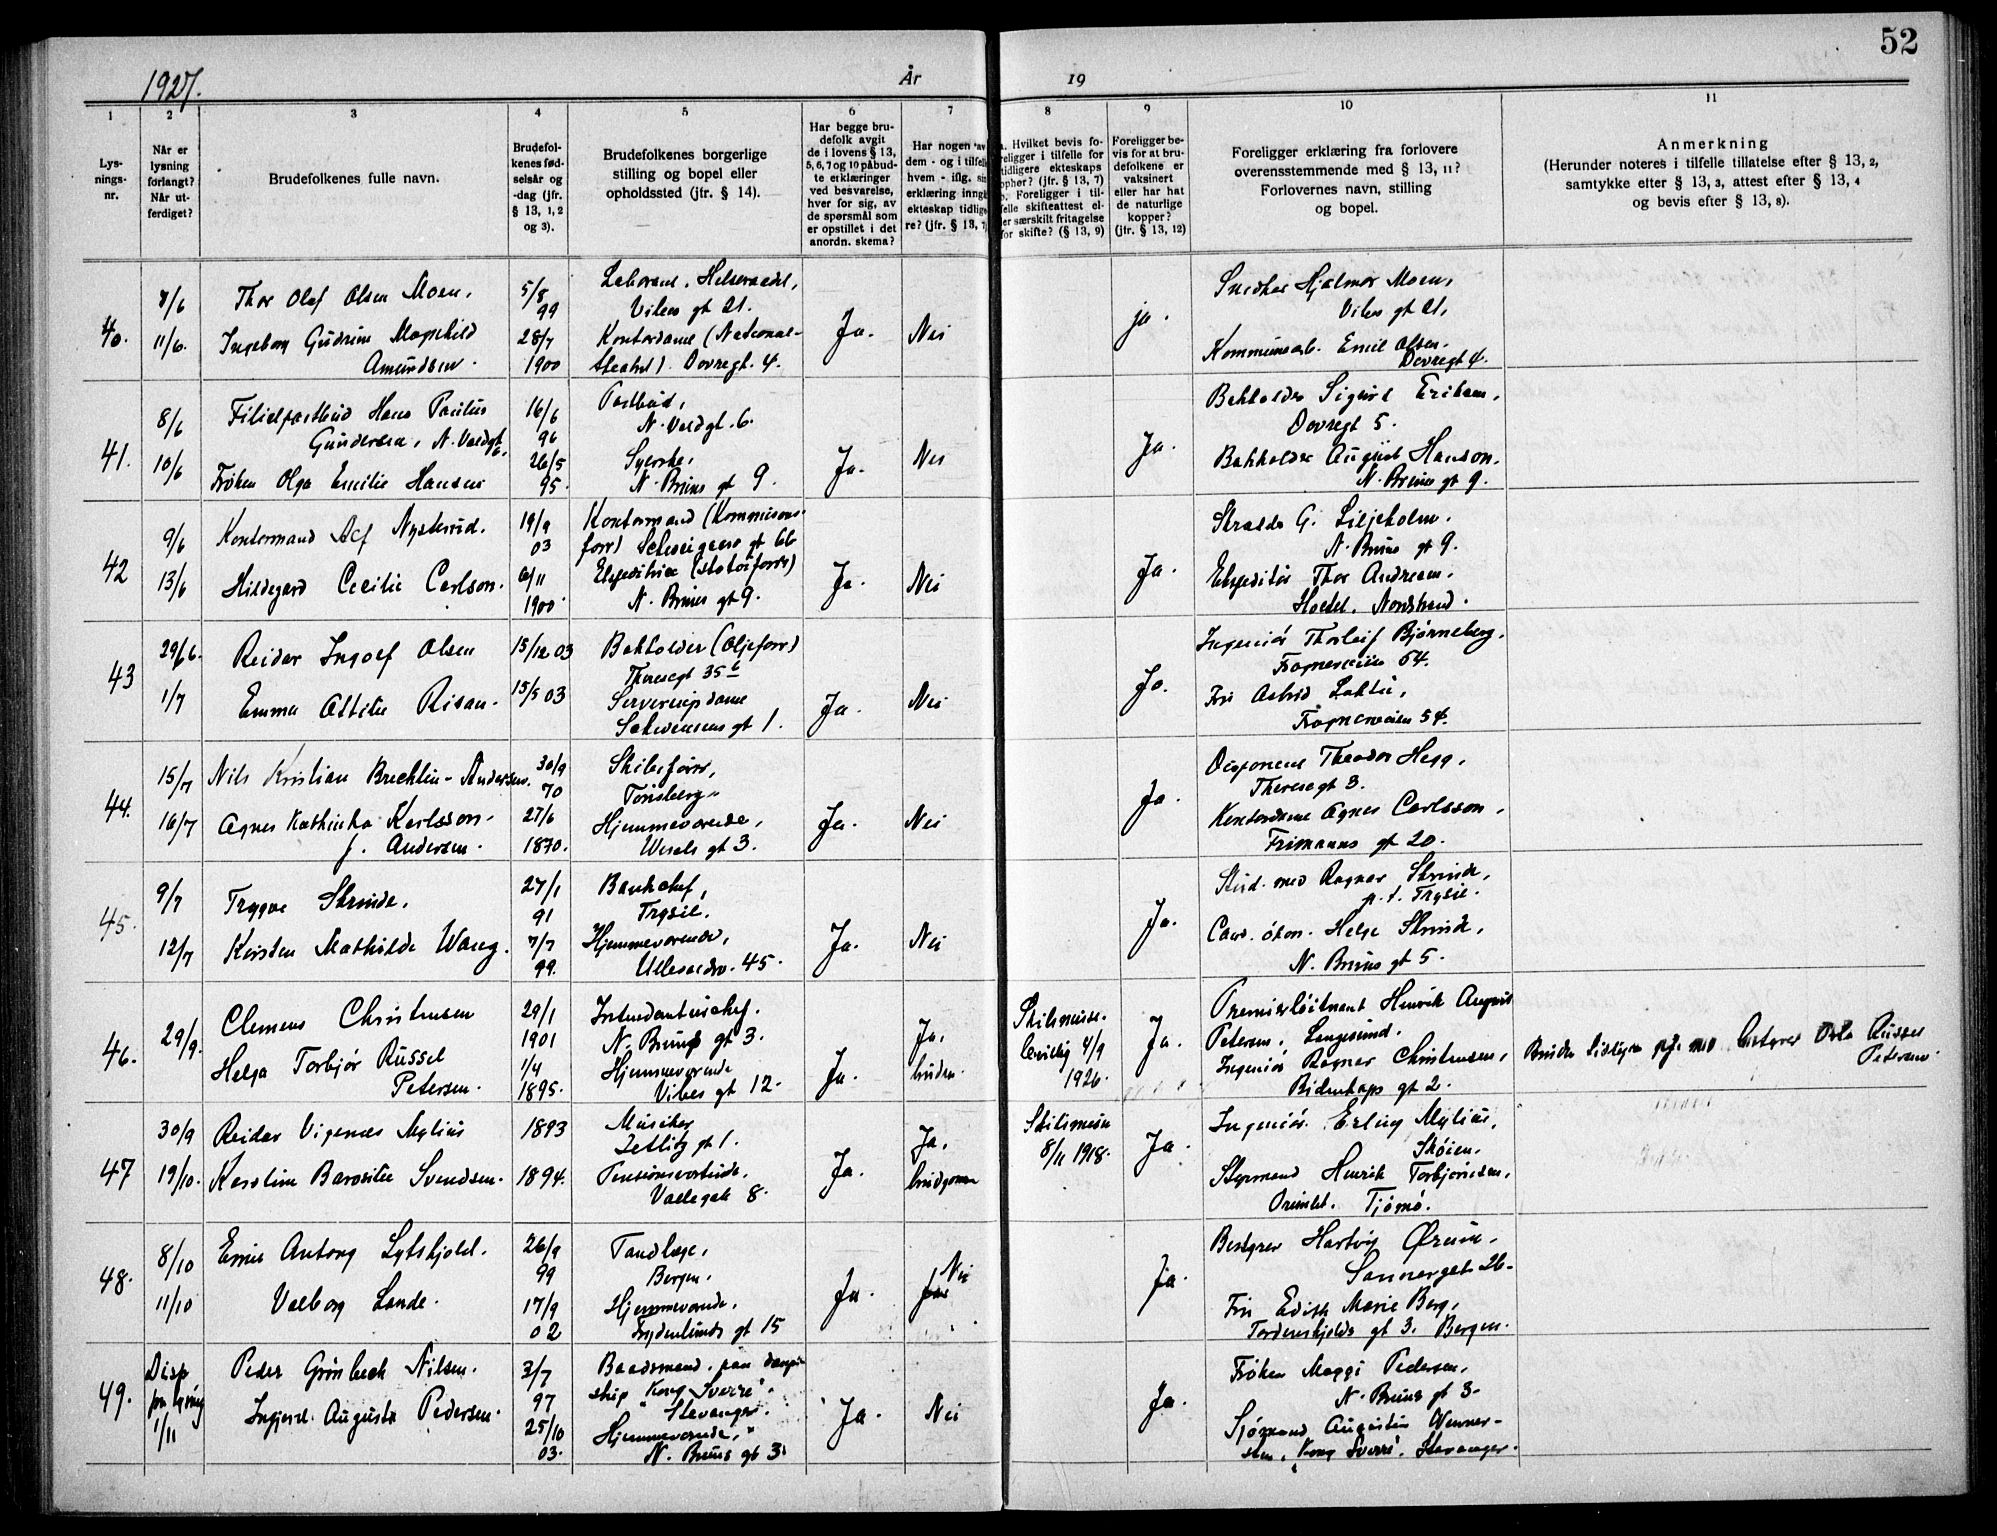 52
1927.
År
19
1
2
3
4
5
6
7
8
9
10
11
Lysningsnr.
Når er lysning forlangt? Når utferdiget?
Brudefolkenes fulle navn.
Brudefolkenes fødselsår og -dag (jfr. § 13, 1, 2 og 3).
Brudefolkenes borgerlige stilling og bopel eller opholdssted (jfr. § 14).
Har begge brudefolk avgit de i lovens § 13, 5, 6, 7 og 10 påbudte erklæringer ved besvarelse, hver for sig, av de spørsmål som er opstillet i det anordn. skema?
Har nogen av dem - og i tilfelle hvem - iflg. sin erklæring inngå ekteskap tidligere? (jfr. § 13, 7
a. Hvilket bevis foreligger i tilfelle for tidligere ekteskaps ophør? (jfr. § 13, 7)
b. Foreligger i tilfelle skifteattest eller særskilt fritagelse for skifte? (§ 13, 9)
Foreligger bevis for at brudefolkene er vaksinert eller har hat de naturlige kopper? (jfr. § 13, 12)
Foreligger erklæring fra forlovere overensstemmende med § 13, 11? Forlovernes navn, stilling og bopel.
Anmerkning
(Herunder noteres i tilfelle tillatelse efter § 13, 2, samtykke efter § 13, 3, attest efter § 13, 4 og bevis efter § 13, 8).
40.
7/6
11/6.
Thor Olaf Olsen Moen,
Ingeborg Gudrun Magnhild
Amundsen.
5/8
99
28/7
1900
Laborant, Helseraadet,
Vibes gt 21.
Kontordame (National-
theatret). Dovregt. 4.
Ja.
Nei
ja.
Snedker Hjalmar Moen,
Vibes gt 21,
Kommunearb. Emil Olsen.
Dovregt 4.
41.
8/6
10/6
Filialpostbud Hans Paulus
Gundersen, N. Vardgt
6.
Frøken Olga Emilie Hansen
16/6
96
26/5
95.
Postbud,
N. Vardgt. 6.
Syerske,
N. Bruns gt 9.
Ja.
Nei
Ja.
Bokholder Sigurd Eriksen,
Dovregt 5.
Bokholder August Hanson.
N. Bruns gt 9.
42
9/6
13/6
Kontormand Alf Nysterud.
Hildegard Cecilie Carlson.
19/9
03
6/11
1900
Kontormand (Kommisions-
forr) Schweigaards gt 66
Ekspeditrice
N. Bruns gt 9.
Ja.
Nei
Ja.
G. Liljeholm.
N. Bruns gt 9.
Ekspeditør Thor Andresen,
Nordstrand.
43
29/6.
1/7
Reidar Ingolf Olsen
Emma Ottilie Risan.
15/12 03
15/5 03
Bokholder (Oljeforr)
Theresegt 35
Serveringsdame
Schwensens gt 1.
Ja.
Nei
Ja.
Ingeniør Thorleif Bjørneberg.
Frognerveien 54.
Fru Astrid
Frognerveien 54.
44.
15/7
16/7
Nils Kristian Brechlin-Andersen.
Agnes Kathinka Karlsson.
f. Andersen.
30/9
70
27/6
1870.
Skibsfører,
Tønsberg.
Hjemmeværende,
Wesels gt 3.
Ja.
Nei
Ja.
Disponent Theodor Hegg,
Theresegt 3.
Kontordame Agnes Carlsson,
Frimanns gt 20.
45.
9/7
12/7
Trygve Skrinde,
Kirsten Mathilde Wang.
27/1
91
7/7
99.
Bankchef,
Trysil.
Hjemmeværende,
Ullevaalsv. 45.
Ja.
Nei
Ja.
Stud. med Ragnar Skrinde,
p.t. Trysil.
Cand. økon. Helge Skrinde,
N. Bruns gt 5.
46.
29/9.
Clemens Christensen
Helga Torbjør Russel
Petersen.
29/1
1901
1/4
1895.
Intendanturchef.
N. Bruns gt 3.
Hjemmeværende
Vibes gt 12.
Ja.
Ja,
bruden.
Skilsmisse.
bevillig 4/9
1926.
Ja.
Premierløitnant Henrik August
Petersen, Langesund.
Ingeniør Ragnar Christensen,
Bidenkaps gt 2.
Bruden tidligere gift med bestyrer Russel
Petersen.
47
30/9
19/10.
Reidar Vigenæs Mylius
Karoline Svendsen.
1893
1894.
Musiker
Zetlitz gt 1.
Pensionsværtinde,
Vallegate 8.
Ja.
Ja,
brudgommen
Skilsmisse
8/11 1918.
Ja.
Ingeniør Erling Mylius,
Skøien.
Styrmand Henrik Torbjørnsen,
Ormlet. Tjømø.
48.
8/10
11/10
Einar Antony Lytskjold.
Valborg Lande.
26/9
99
17/9
02
Tandlæge,
Bergen.
Hjemmeværende,
Frydenlunds gt 15
Ja.
Nei
ja.
Bestyrer Hartvig Ørum,
Sannergt. 26.
Fru Edith Marie Berg,
Tordenskjolds gt 3. Bergen.
49.
Disp
fra lysning
1/11
Peder Grønbech Nilsen.
Ingjerd Augusta Pedersen.
3/7
97
25/10
03.
Baadsmand paa damp-
skip "Kong Sverre".
Stavanger.
Hjemmeværende,
N. Bruns gt 3.
Ja.
Nei
Ja.
Frøken Maggi Pedersen,
N. Bruns gt 3.
Sjømand Augustin Wenner-
sten, "Kong Sverre", Stavanger.